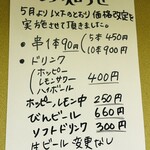 お知らせ
5月より以下のとおり価格改定を
実施させて頂きました。
・串1本90円(5本450円
10本900円
・ドリンク
ホッピー
レモンサワー
ハイボール
400円
ホッピー、レモン中 250円
びんビール 660円
ソフトドリンク 300円
生ビール 変更なし